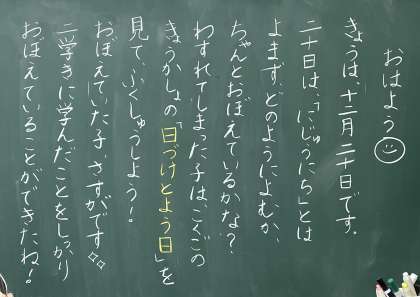 おはよう
きょうは、十二月二十日です。
二十日は、「にじゅうにち」とは
よまず、どのようによむか、
ちゃんとおぼえているかな？
わすれてしまった子は、こくごの
きょうかしょの「日づけとよう日」を
見て、ふくしゅうしよう！
おぼえていた子、さすがです
二学きに学んだことをしっかり
おぼえていることができたね！